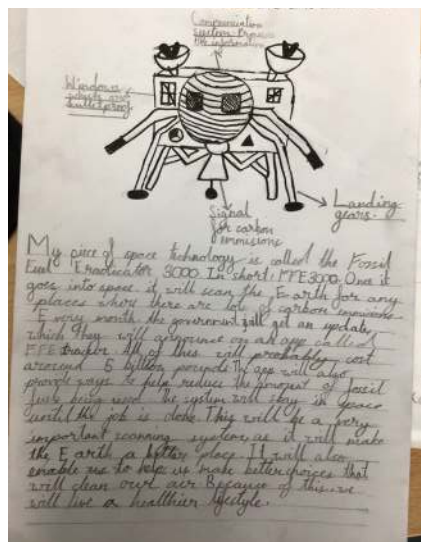 Communication
section. Provid
the information
Windows
bulletproof
Landing
gears.
Signal
for carbon
emmisions
My piece of space technology is called the Fossil
Fuel Eradicator 3000. In short: FFE3000. Once it
goes into space it will scan the Earth for any
places where there are lots of carbon immisions.
Every month the government will get an update,
which they will announce on an app called
FFE tracker. All of this will probably cost
around 5 billion pounds. The app will also
provide ways to help reduce the amount of fossil
fuels being used. The system will stay in space
until the job is done. This will be a very
important scanning system, as it will make
the Earth a better place. It will also
enable me to help us make better choices that
will clean our air. Because of this, we
will live a healthier lifestyle.